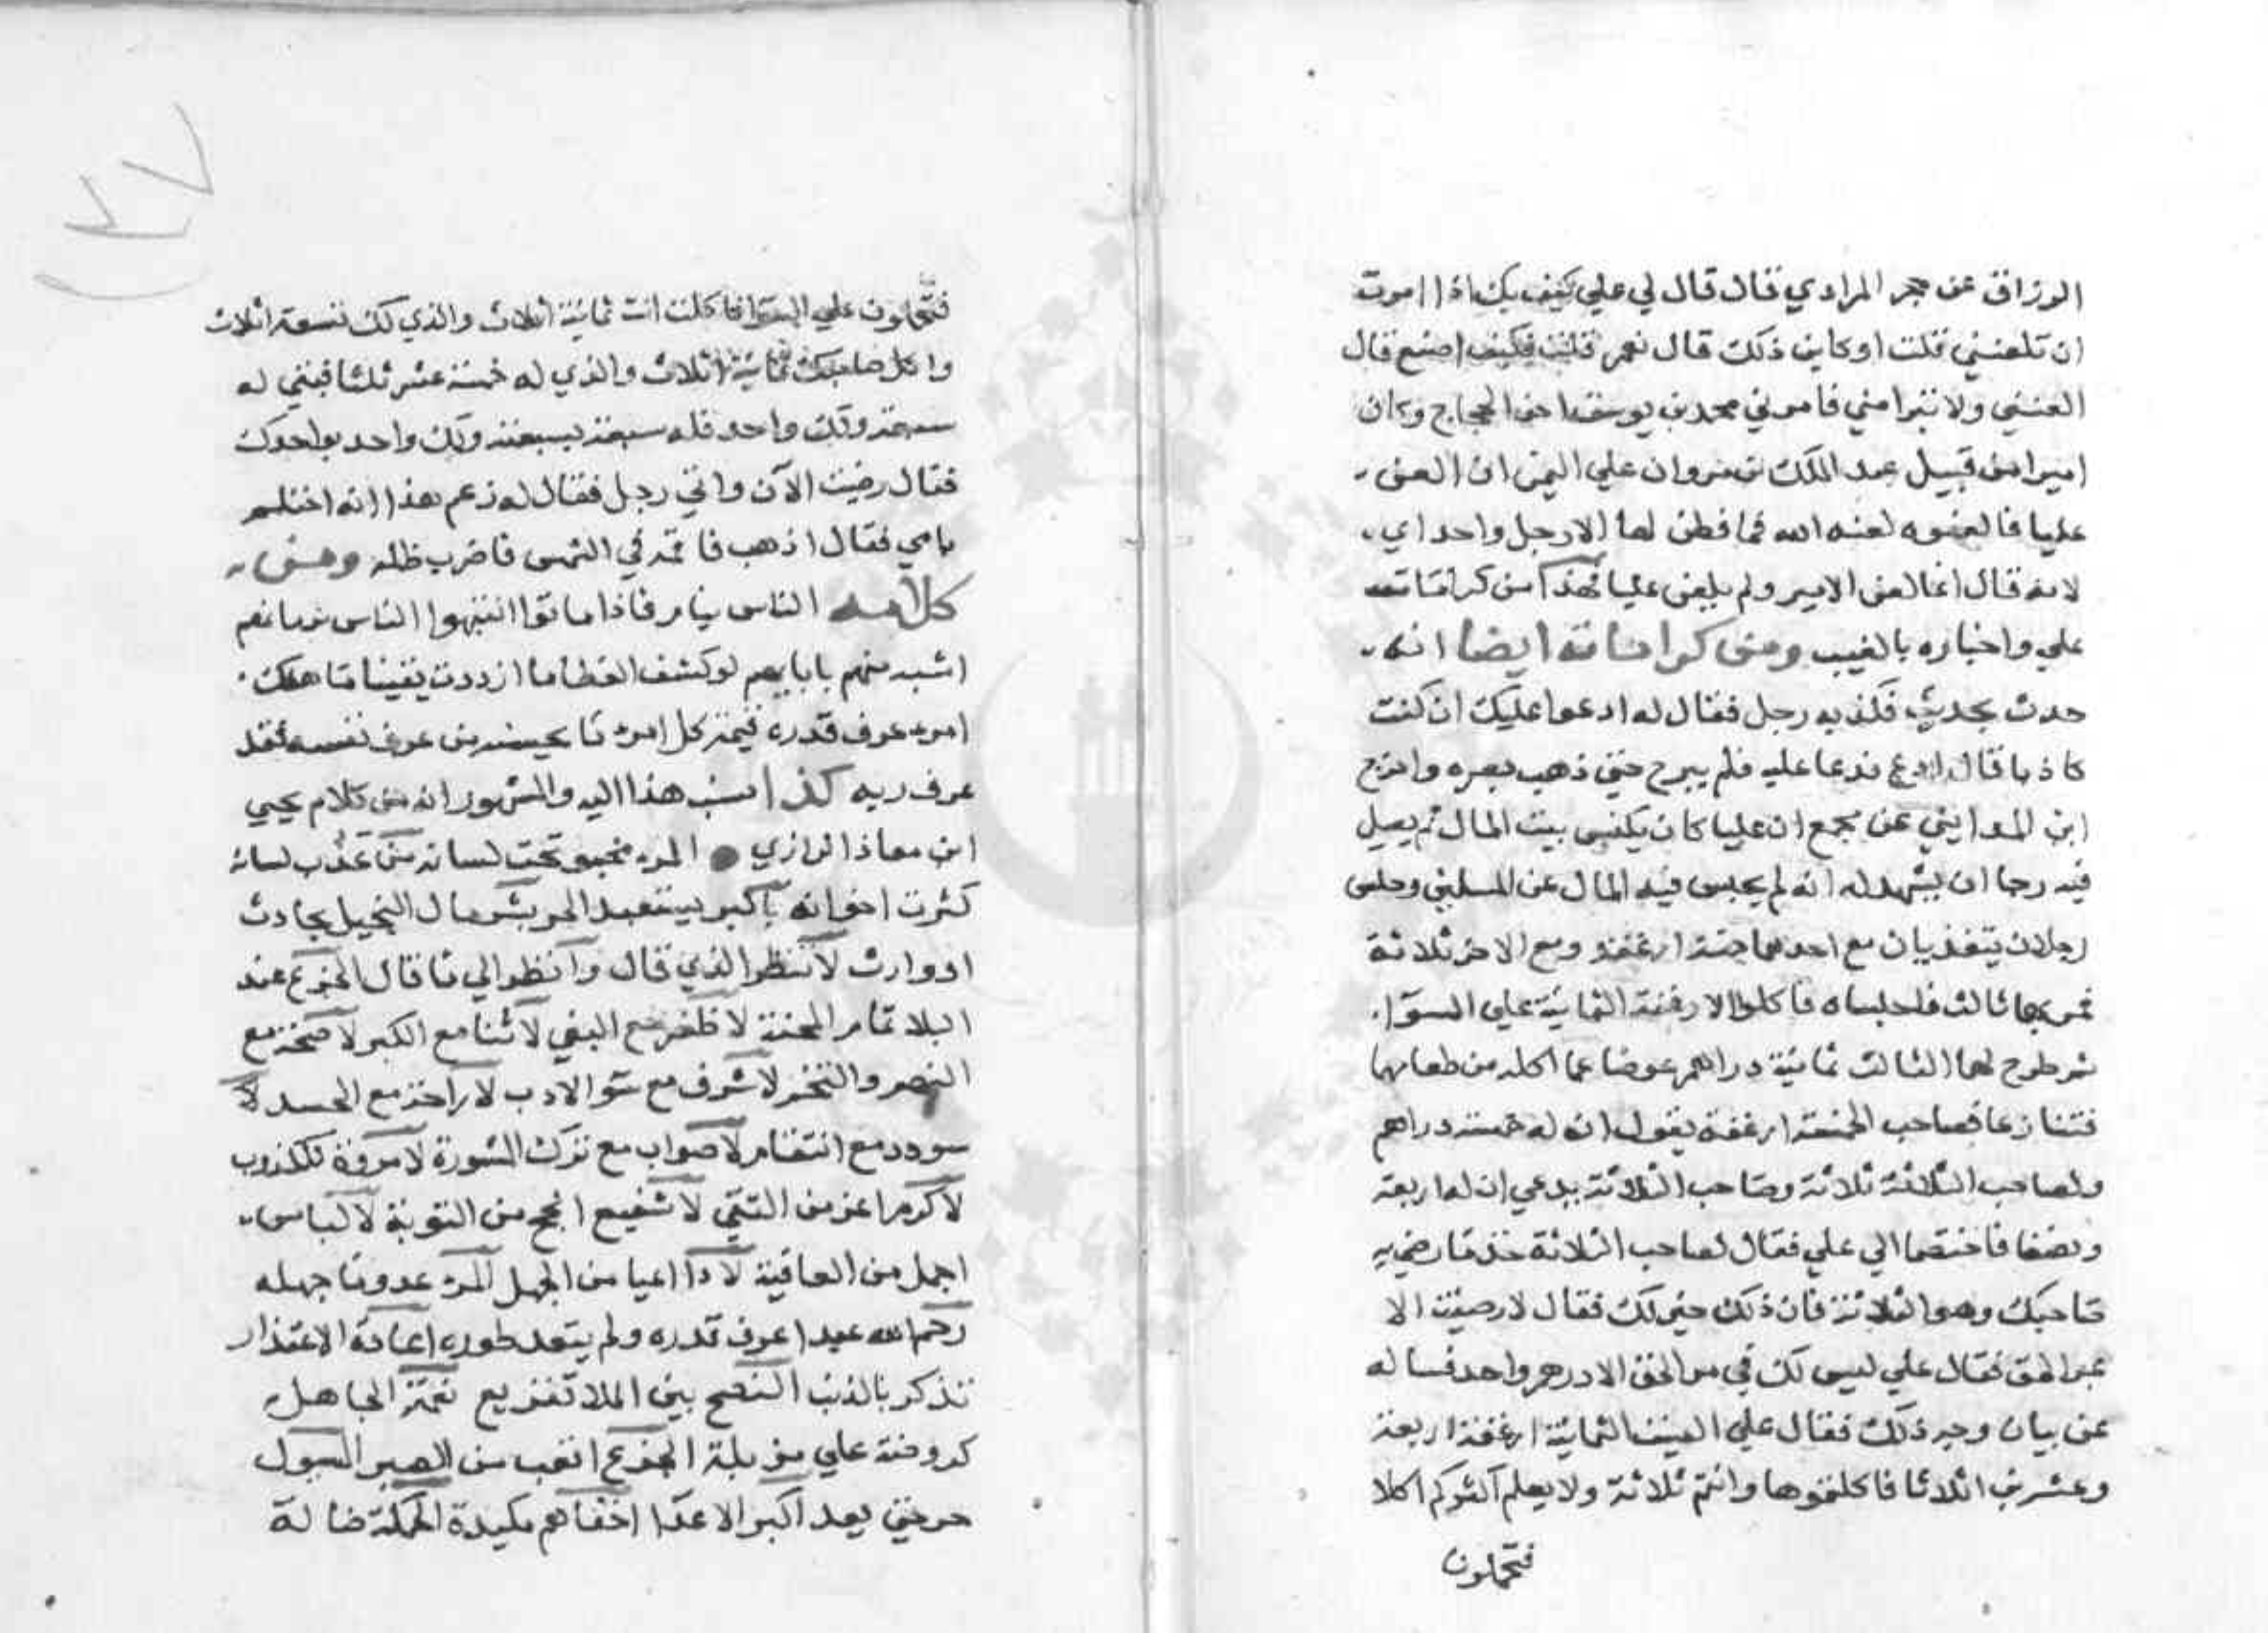 الرزاق عن حجر المرادي قال قال لي علي كيف بك اذا اموت
ان تلعنني قلت اوكاين ذلك قال نعم قلت فكيف اصنع قال
العنني ولا تبرا مني فامرني محمد بن يوسف اخو الحجاج وكان
اميرا من قبيل عبد الملك بن مروان علي اليمن ان العن
عليا فالعنوه لعنه الله فما فطن لها الا رجل واحد اي
لانه قال انما لعن الامير ولم يلعن عليا فهذا من كرامات
علي واخباره بالغيب ومن كراماته ايضا انه
حدث بحديث فكذبه رجل فقال له ادعوا عليك ان كنت
كاذبا قال ادع فدعا عليه فلم يبرح حتي ذهب بصره واخرج
ابن المدايني عن مجمع ان عليا كان يكنس بيت المال ثم يصلي
فيه رجا ان يشهد له انه لم يحبس فيه المال عن المسلمين وجلس
رجلان يتغذيان مع احدهما خمسة ارغفة ومع الاخر ثلاثة
فمر بهما ثالث فاجلساه فاكلوا الارغفة الثمانية علي السوا
ثم طرح لهما الثالث ثمانية دراهم عوضا عما اكله من طعامهما
فتنازعا فصاحب الخمسة ارغفة يقول ان له خمسة دراهم
ولصاحب الثلاثة ثلاثة وصاحب الثلاثة يدعي ان له اربعة
ونصفا فاختصما الي علي فقال لصاحب الثلاثة خذ ما رضي به
صاحبك وهو الثلاثة فان ذلك خير لك فقال لا رضيت الا
بمر الحق فقال علي ليس لك في مر الحق الا درهم واحد فساله
عن بيان وجه ذلك فقال علي اليست الثمانية ارغفة اربعة
وعشرين اثلاثا فاكلتموها وانتم ثلاثة ولا يعلم اكثركم اكلا
فتحملون
فتحملون علي السوا فاكلت انت ثمانية اثلاث والذي لك تسعة اثلاث
واكل صاحبك ثمانية اثلاث والذي له خمسة عشر ثلثا فبقي له
سبعة ولك واحد فله سبعة بسبعته ولك واحد بواحدك
فقال رضيت الآن واتي رجل فقال له زعم هذا انه احتلم
بامي فقال اذهب فاقمه في الشمس فاضرب ظله ومن
كلامه الناس نيام فاذا ماتوا انتبهوا الناس بزمانهم
اشبه منهم بابايهم لو كشف الغطا ما ازددت يقينا ما هلك
امرء عرف قدره قيمة كل امرء ما يحسنه من عرف نفسه فقد
عرف ربه كذا نسب هذا اليه والمشهور انه من كلام يحيي
ابن معاذ الرازي المرء مخبو تحت لسانه من عذب لسانه
كثرت اخوانه بالبر يستعبد الحر بشر مال البخيل بحادث
او وارث لا تنظر الذي قال وانظر الي ما قال الجزع عند
البلا تمام المحنة لا ظفر مع البغي لا ثنا مع الكبر لا صحة مع
النهم والتخم لا شرف مع سو الادب لا راحة مع الحسد لا
سودد مع انتقام لا صواب مع ترك المشورة لا مروة للكذوب
لا كرم اعز من التقي لا شفيع انجح من التوبة لا لباس
اجمل من العافية لا دا اعيا من الجهل المرء عدو ما جهله
رحم الله عبدا عرف قدره ولم يتعد طوره اعادة الاعتذار
تذكر بالذنب النصح بين الملا تقريع نعمة الجاهل
كروضة علي مزبلة الجزع اتعب من الصبر المسول
حر حتي يعد اكبر الاعدا اخفاهم مكيدة الحكمة ضالة